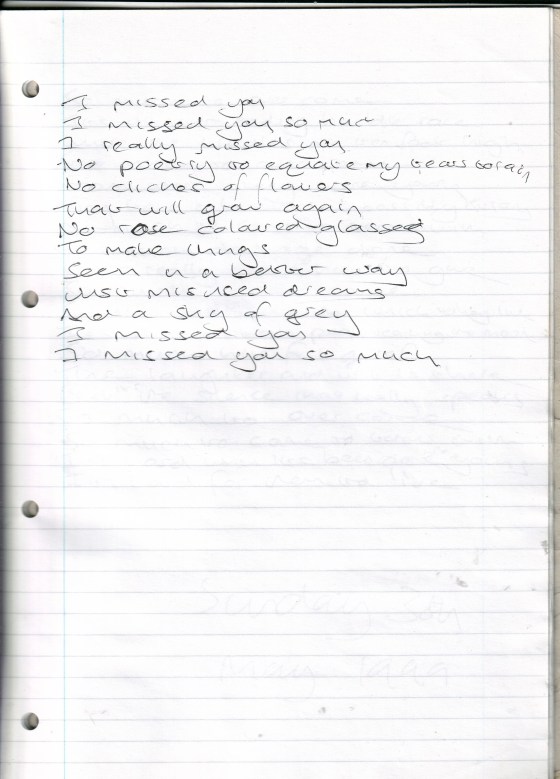 I missed you
I missed you so much
I really missed you
No poetry to equate my tears to rain
No cliches of flowers
That will grow again
No rose coloured glasses
To make things
Seem in a better way
Just misused dreams
And a sky of grey
I missed you
I missed you so much
Sunday
May